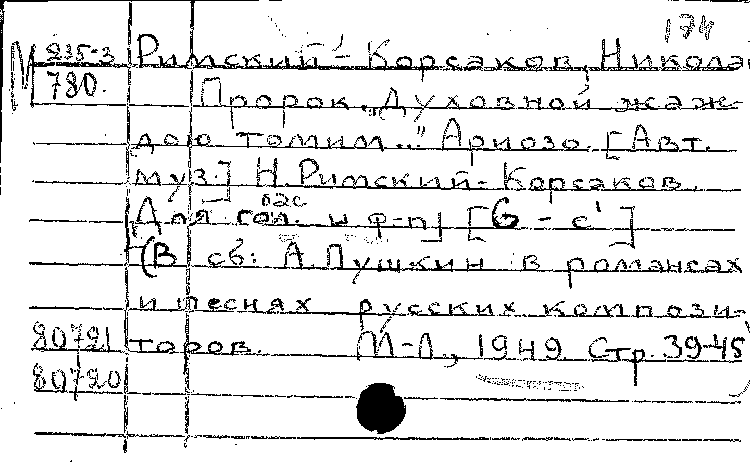 174
М 235-3 Римский-Корсаков, Никола
780. Пророк. „Духовной жаж-
дою томим..." Ариозо. [Авт.
муз.] Н. Римский-Корсаков.
бас
[Для гол. и ф-п] [G - c']
(В сб: А. Пушкин в романсах
и песнях русских компози-
80721 торов. М-Л, 1949. Стр. 39-45
80720